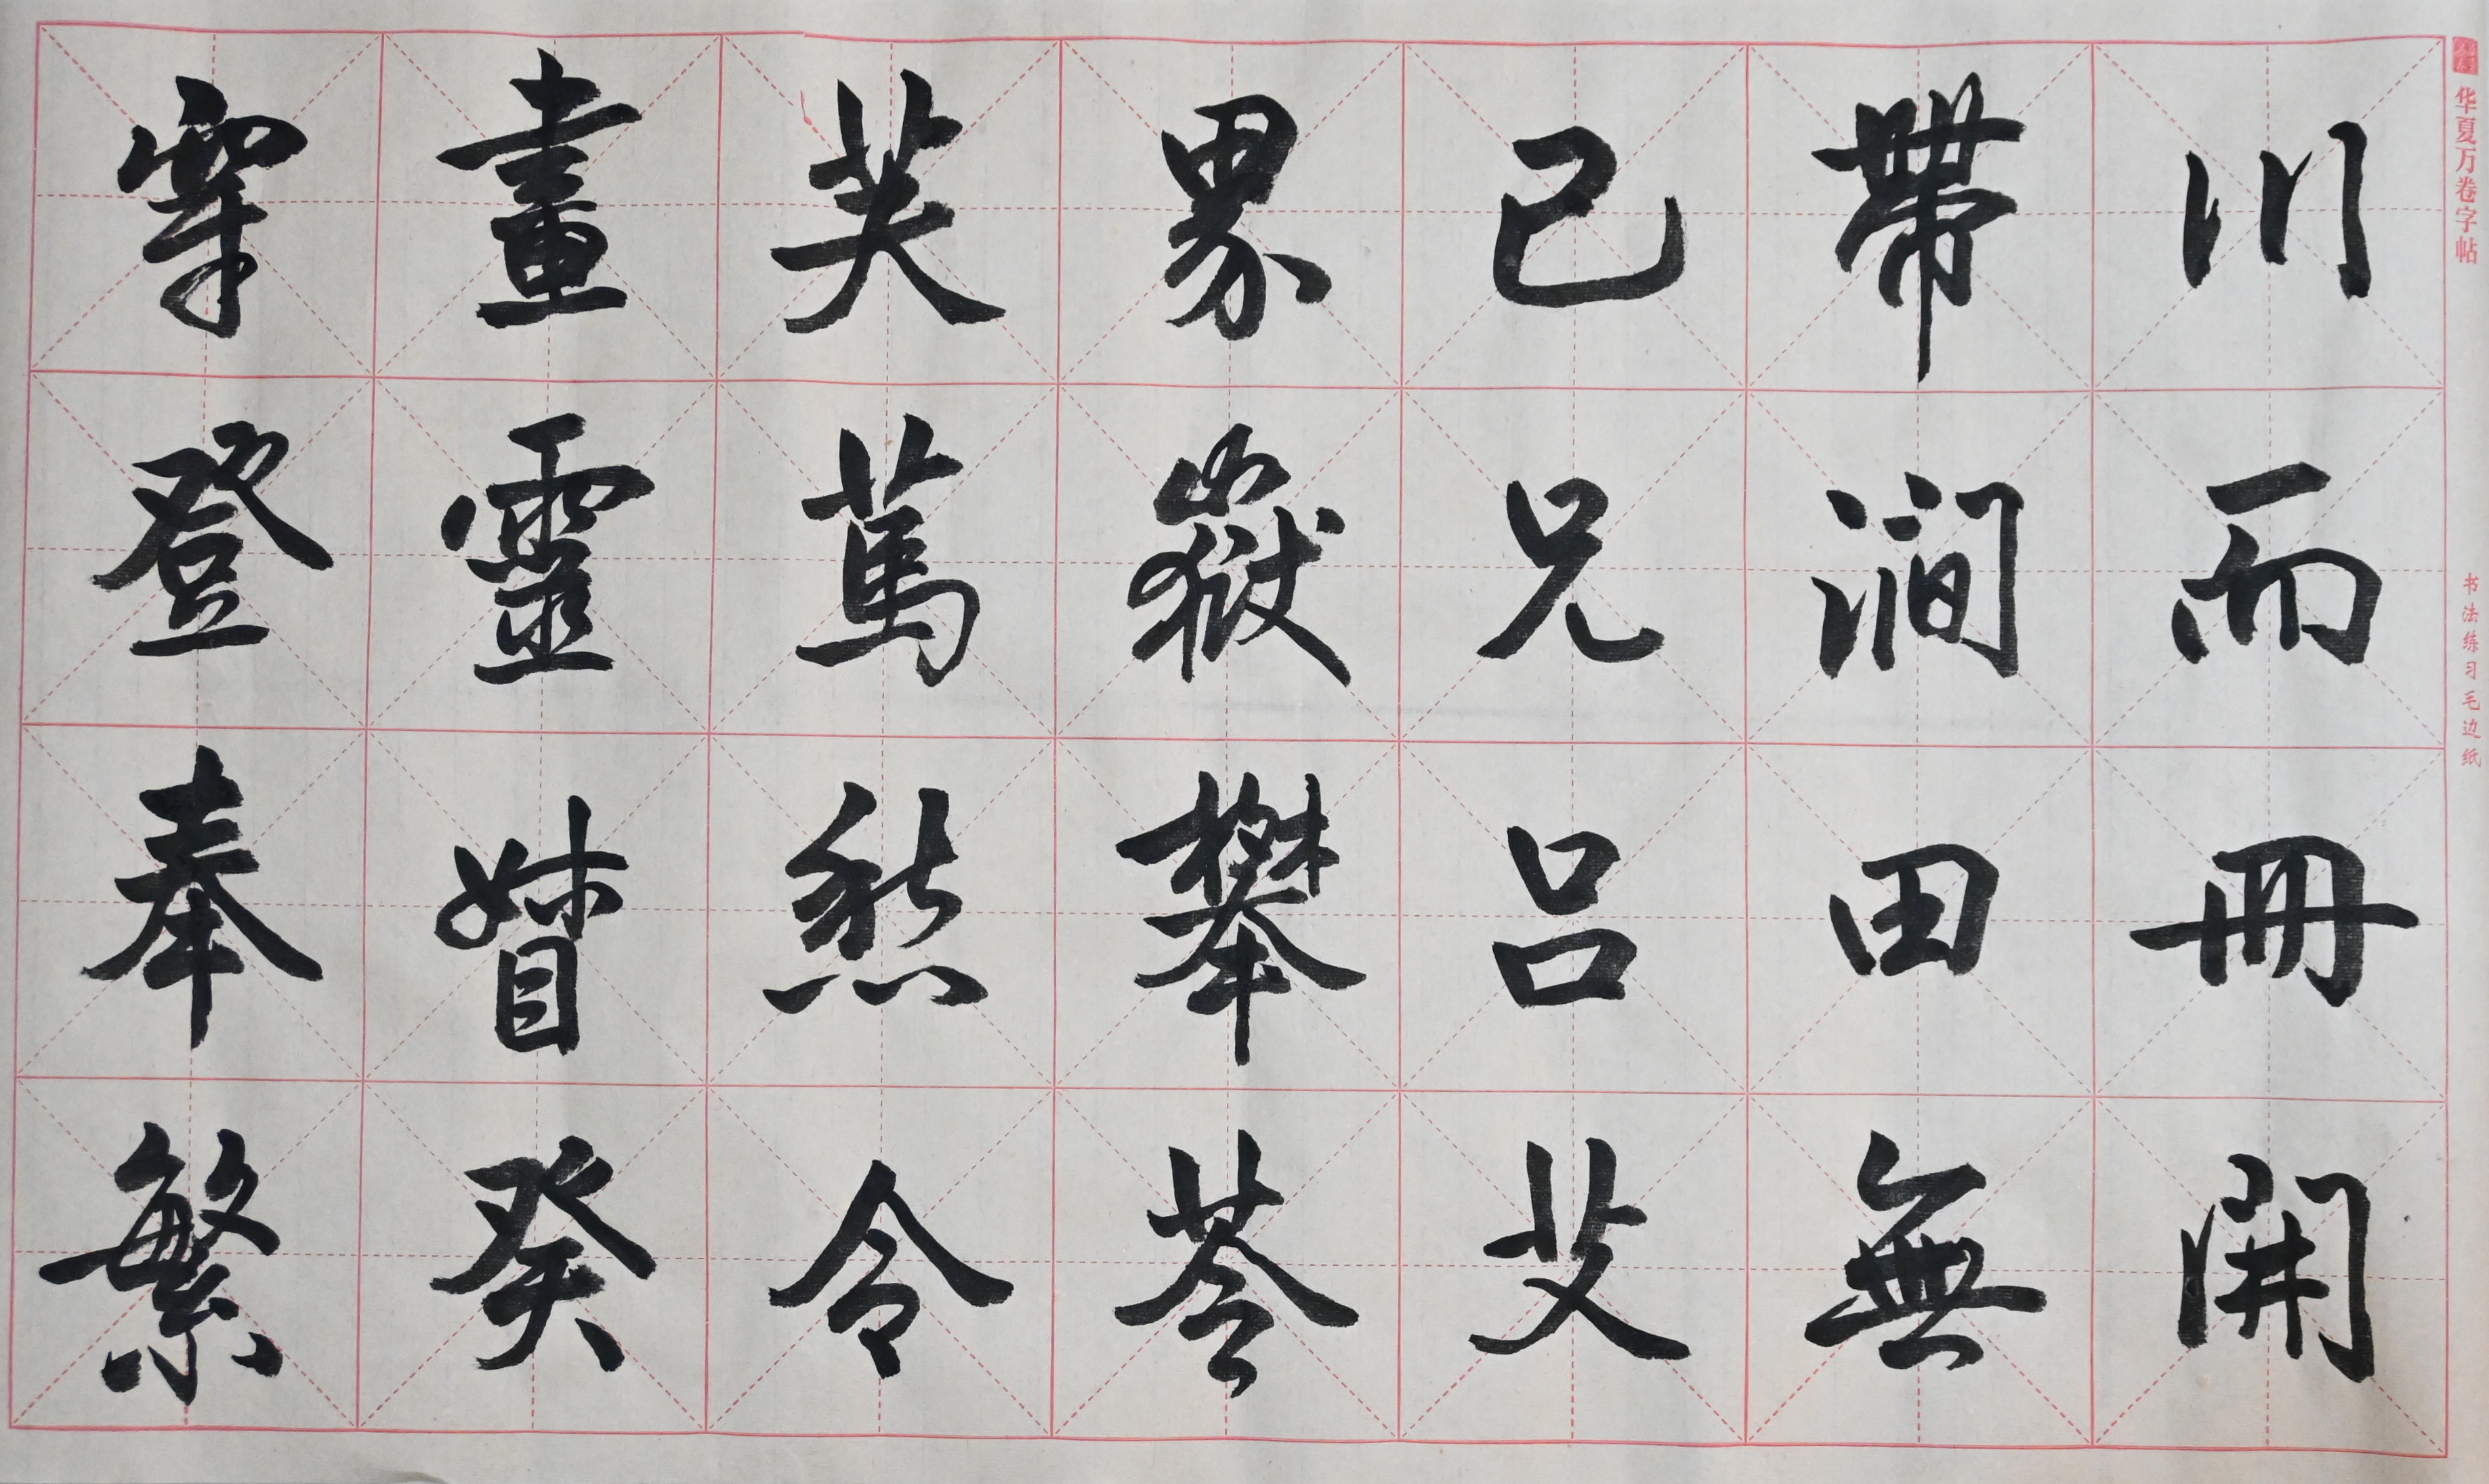 川而冊開
帶澗田無
已兄呂艾
界嶽攀苓
笑篤愁令
畫靈督癸
穿登奉繁
华夏万卷字帖
书法练习毛边纸